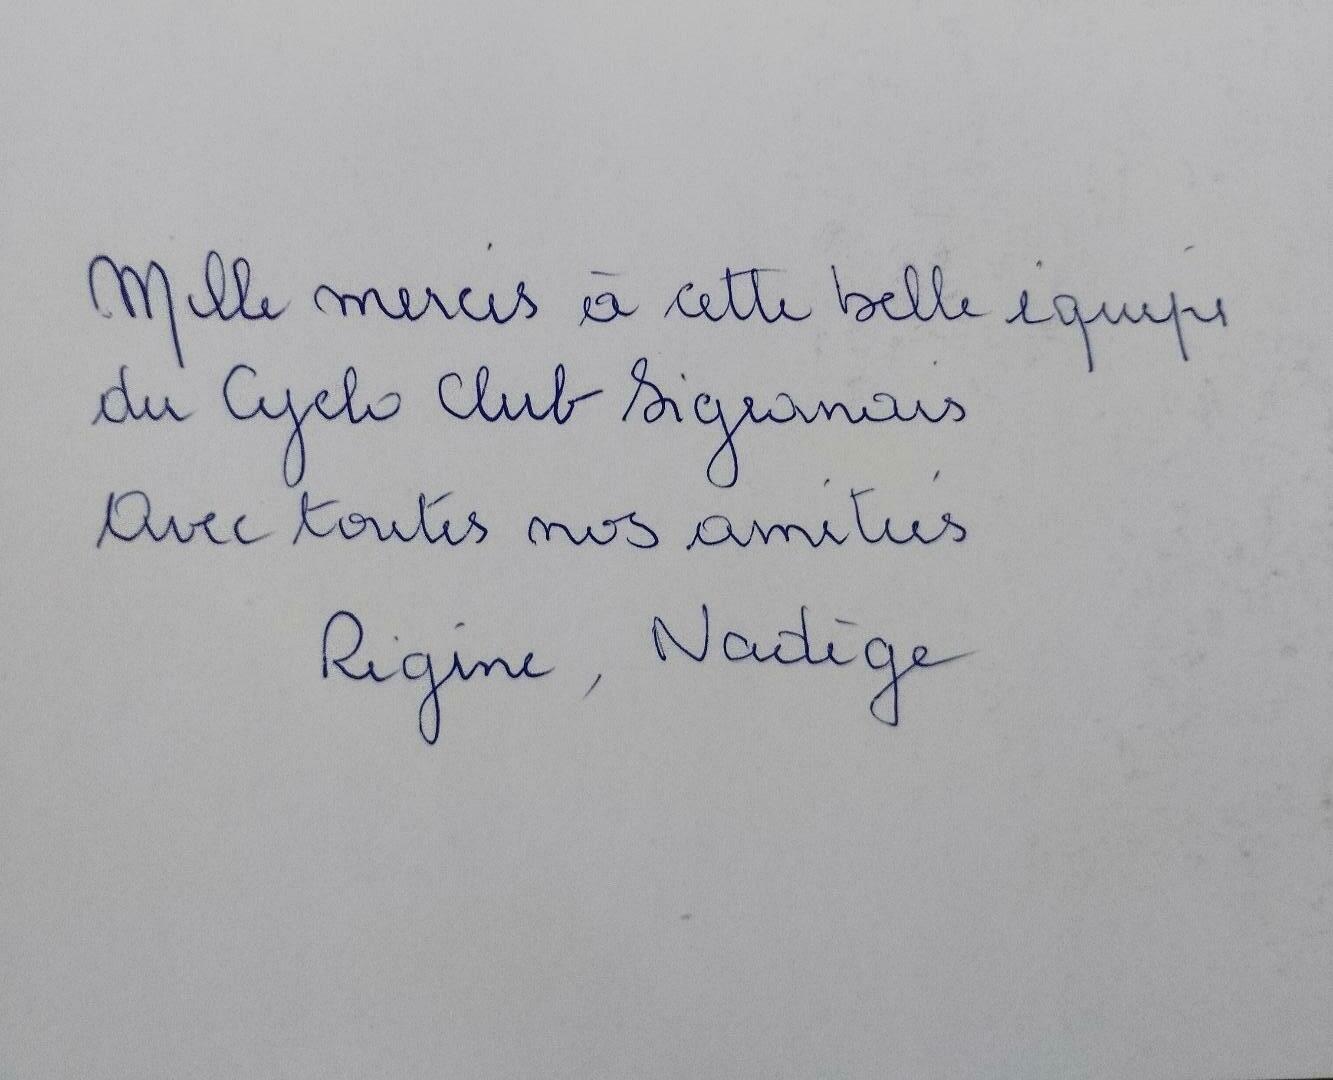 Mille mercis à cette belle équipe
du Cyclo Club Sigeanais
Avec toutes nos amitiés
Régine, Nadège